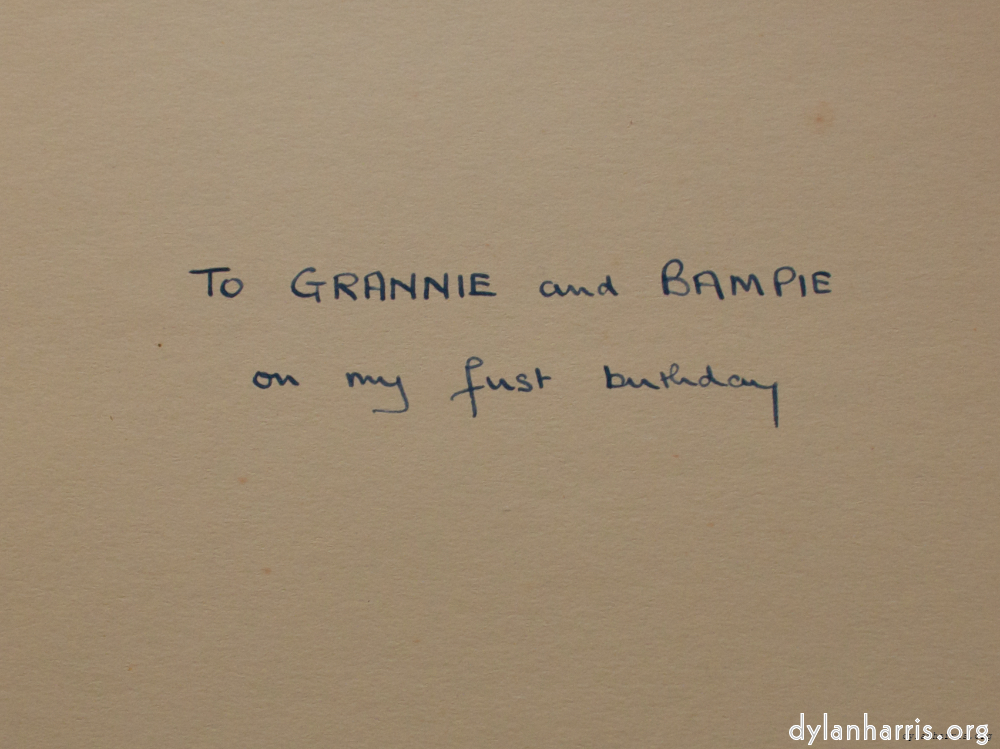 To GRANNIE and BAMPIE
on my first birthday
dylanharris.org